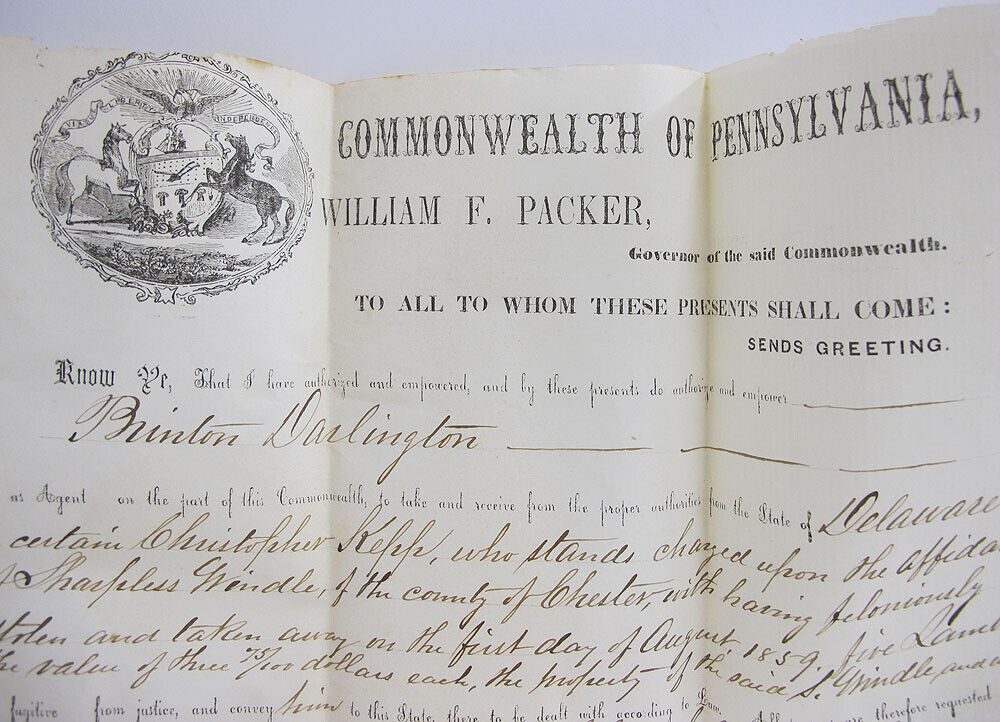 VIRTUE LIBERTY INDEPENDENCE
COMMONWEALTH OF PENNSYLVANIA,
WILLIAM F. PACKER,
Governor of the said Commonwealth.
TO ALL TO WHOM THESE PRESENTS SHALL COME:
SENDS GREETING.
Know Ye, That I have authorized and empowered, and by these presents do authorize and empower
Brinton Darlington
as Agent on the part of this Commonwealth, to take and receive from the proper authorities from the State of Delaware
certain Christopher Kepp, who stands charged upon the affida
Sharpless Windle, of the county of Chester, with having feloniously
stolen and taken away on the first day of August 1859, five Lamb
the value of three 75/100 dollars each, the property of the said S. Windle, and
fugitive from justice, and convey him to this State, there to be dealt with according to Law.
All are therefore requested